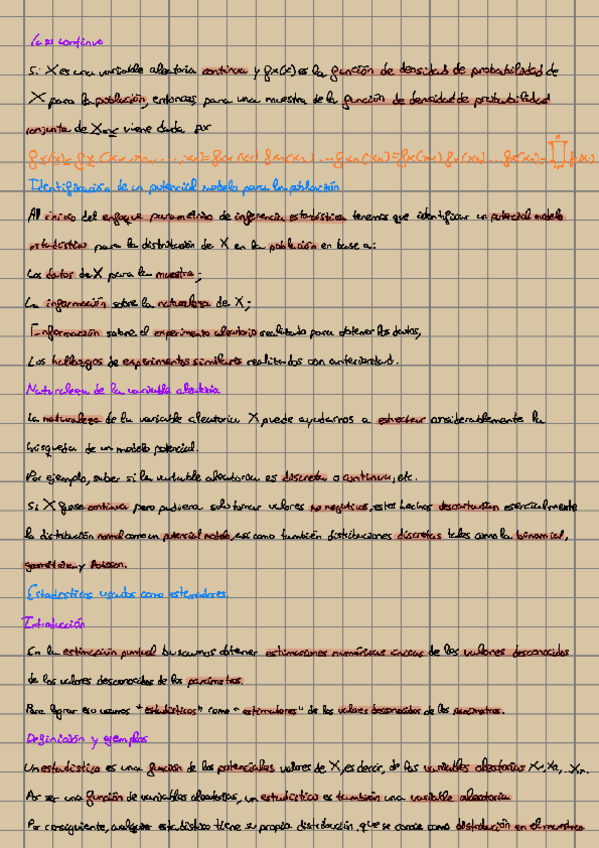 Caso continuo
Si X es una variable aleatoria continua y fx(x) es la función de densidad de probabilidad de
X para la población, entonces para una muestra de la función de densidad de probabilidad
conjunta de viene dada por
Identificación de un potencial modelo para la población
Al inicio del enfoque paramétrico de inferencia estadística tenemos que identificar un potencial modelo
estadístico para la distribución de X en la población en base a:
Los datos de X para la muestra;
La información sobre la naturaleza de X;
Información sobre el experimento aleatorio realizado para obtener los datos,
Los hallazgos de experimentos similares realizados con anterioridad.
Naturaleza de la variable aleatoria
La naturaleza de la variable aleatoria X puede ayudarnos a estrechar considerablemente la
búsqueda de un modelo potencial.
Por ejemplo, saber si la variable aleatoria es discreta o continua, etc.
Si X fuese continua pero pudiera solo tomar valores no negativos, estos hechos descartarían esencialmente
la distribución normal como un potencial modelo, así como también distribuciones discretas tales como la binomial,
geométrica y Poisson.
Estadísticos usados como estimadores
Introducción
En la estimación puntual buscamos obtener estimaciones numéricas únicas de los valores desconocidos
de los valores desconocidos de los parámetros.
Para lograr eso usamos "estadísticos" como "estimadores" de los valores desconocidos de los parámetros.
Definición y ejemplos
Un estadístico es una función de los potenciales valores de X, es decir, de las variables aleatorias X1, X2, ..., Xn.
Al ser una función de variables aleatorias, un estadístico es también una variable aleatoria
Por consiguiente, cualquier estadístico tiene su propia distribución, que se conoce como distribución en el muestreo